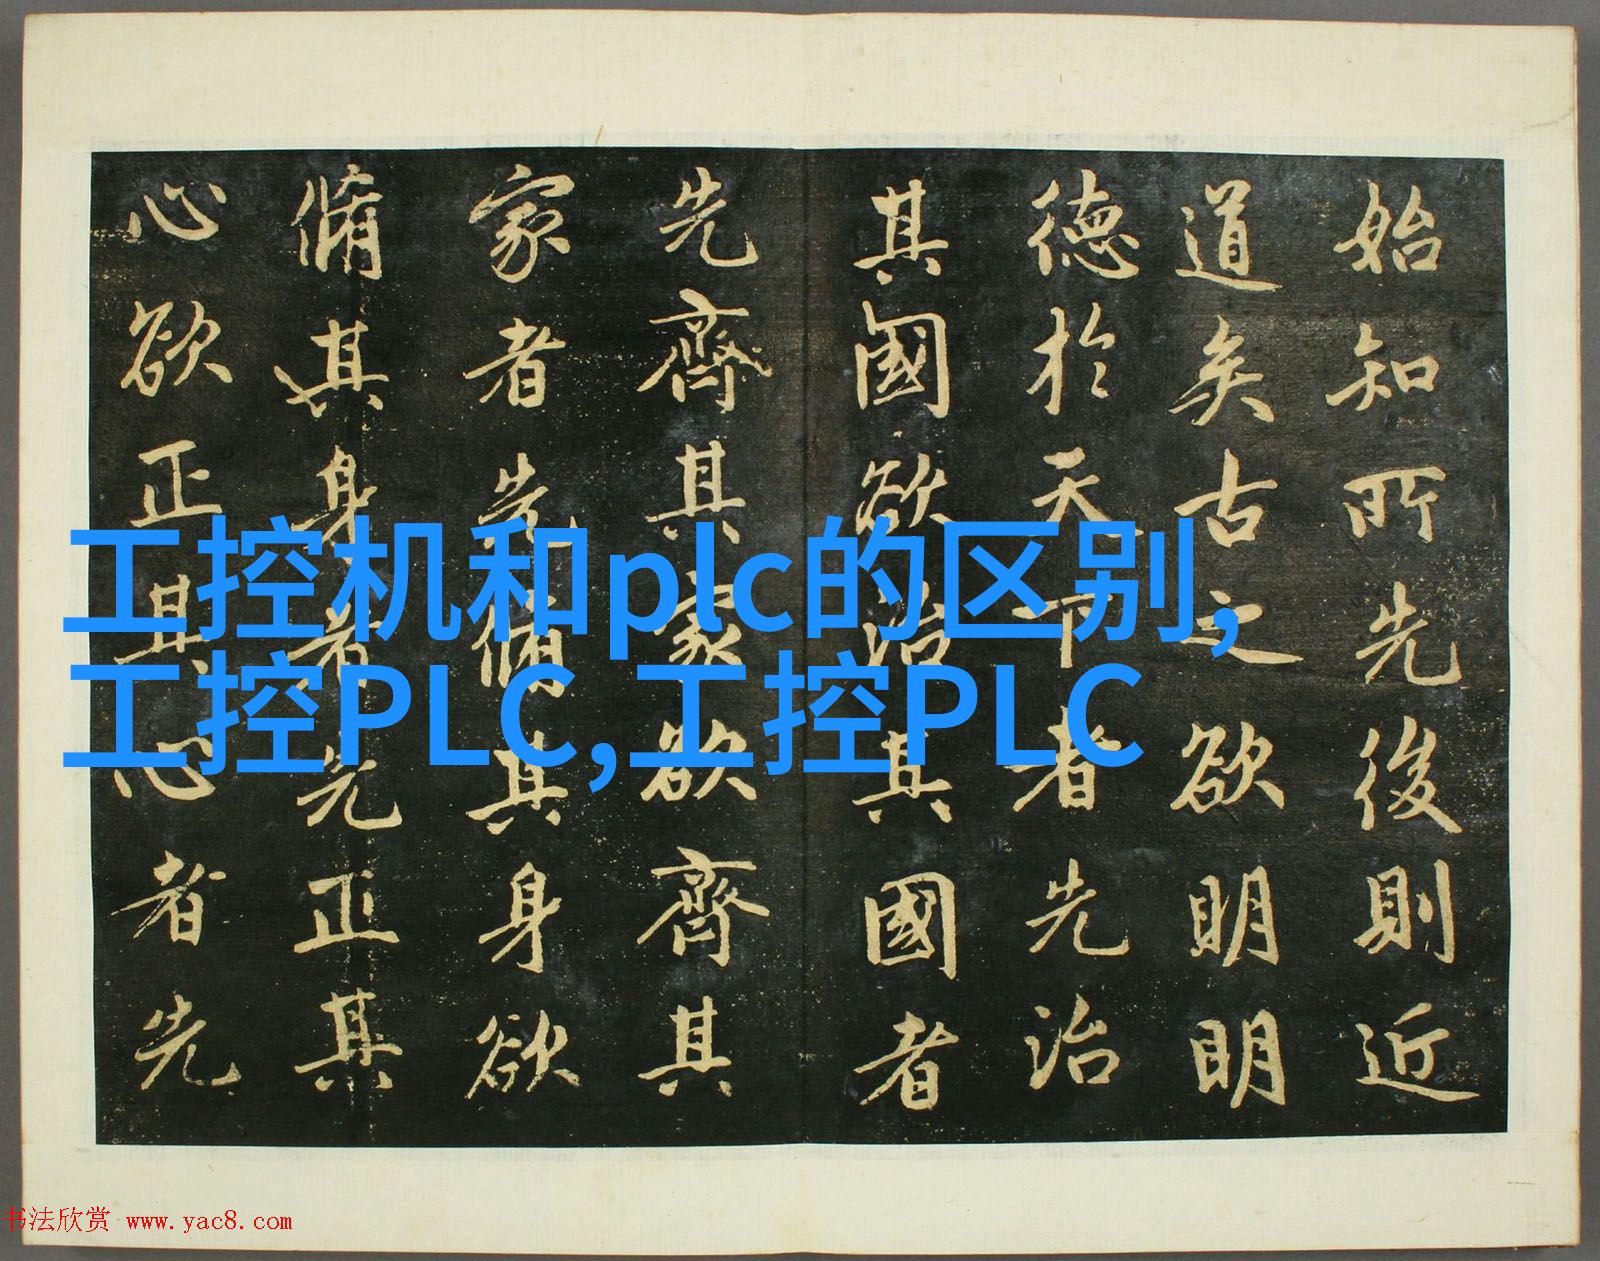 工控机和plc的区别,
工控PLC,工控PLC
始知所先後則近
道矣古之欲明明
德於天下者先治
其國欲治其國者
先齊其家欲齊其
家者先脩其身欲
脩其身者先正其
心欲正其心者先
书法欣赏 www.yac8.com